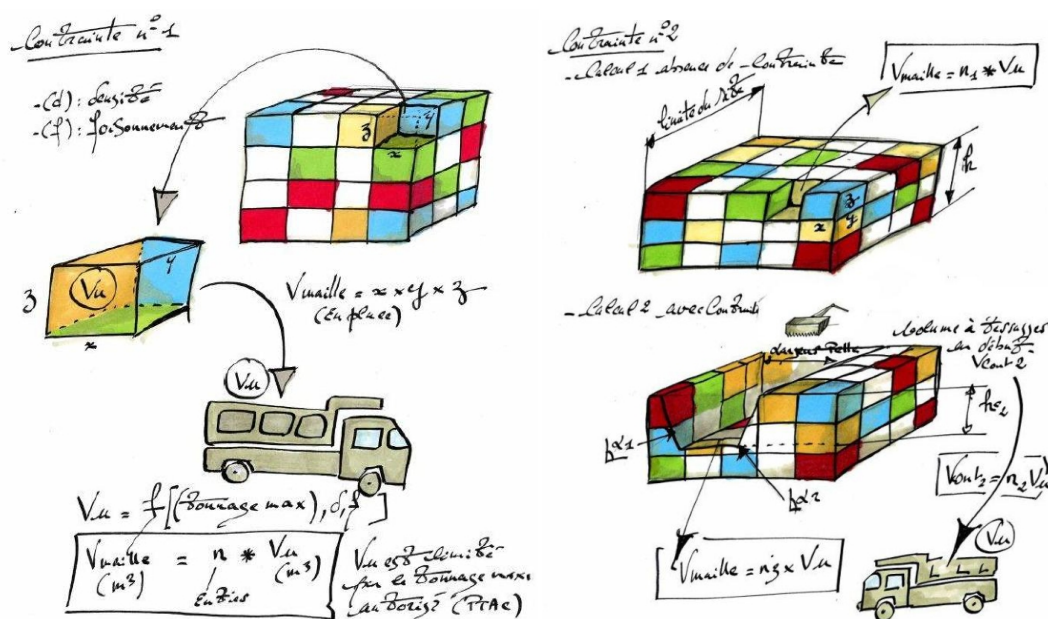 Contrainte n°1
-(d) : densité
-(f) : foisonnement
z
y
x
z
Vu
y
x
Vmaille = x x y x z
(En place)
Vu
Vu = f[(tonnage max), d, f]
Vmaille = n * Vu
(m³) (m³)
Entier
Vu est limité
par le tonnage maxi
autorisé (PTAC)
Contrainte n°2
- Calcul 1 absence de contrainte
Vmaille = n1 * Vu
limite du
h
z
x
y
- Calcul 2 avec Contrainte
largeur Pelle
Volume à
en début
Vcont 2
hc2
α1
α2
Vcont2 = n2 Vu
Vu
Vmaille = n3 x Vu